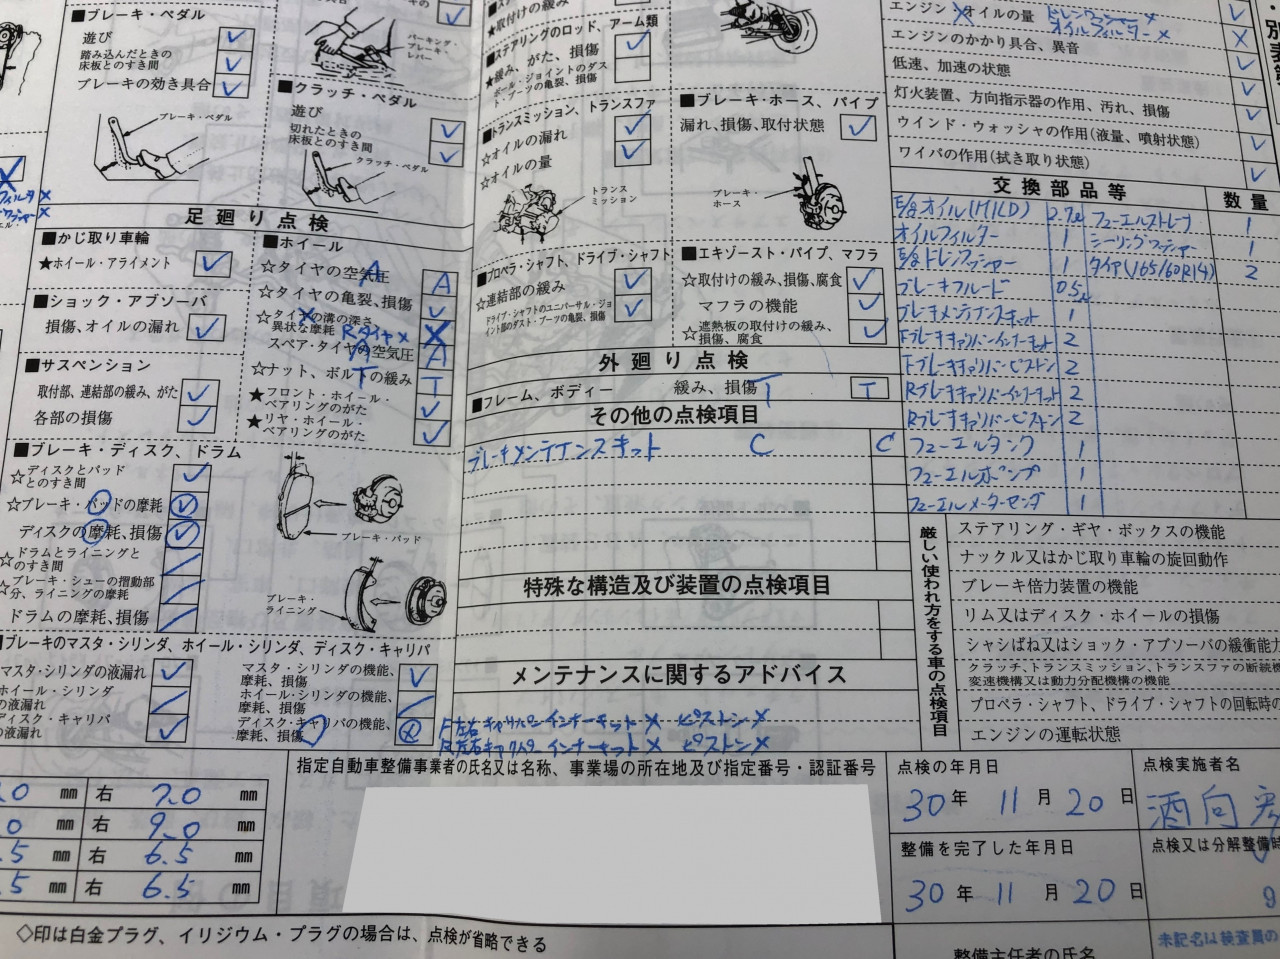 ■ブレーキ・ペダル
遊び
踏み込んだときの
床板とのすき間
ブレーキの効き具合
ブレーキ・ペダル
パーキング・
ブレーキ・
レバー
■クラッチ・ペダル
遊び
切れたときの
床板とのすき間
クラッチ・ペダル
足廻り点検
■かじ取り車輪
★ホイール・アライメント
■ショック・アブソーバ
損傷、オイルの漏れ
■サスペンション
取付部、連結部の緩み、がた
各部の損傷
■ホイール
☆タイヤの空気圧 A
☆タイヤの亀裂、損傷
☆タイヤの溝の深さ、
異状な摩耗 Rタイヤ×
スペア・タイヤの空気圧 A
☆ナット、ボルトの緩み T
★フロント・ホイール・
ベアリングのがた
★リヤ・ホイール・
ベアリングのがた
■ブレーキ・ディスク、ドラム
☆ディスクとパッド
とのすき間
☆ブレーキ・パッドの摩耗
ディスクの摩耗、損傷
☆ドラムとライニングと
のすき間
☆ブレーキ・シューの摺動部
分、ライニングの摩耗
ドラムの摩耗、損傷
ブレーキ・パッド
ブレーキ・
ライニング
■ブレーキのマスタ・シリンダ、ホイール・シリンダ、ディスク・キャリパ
マスタ・シリンダの液漏れ
ホイール・シリンダ
の液漏れ
ディスク・キャリパ
の液漏れ
マスタ・シリンダの機能、
摩耗、損傷
ホイール・シリンダの機能、
摩耗、損傷
ディスク・キャリパの機能、
摩耗、損傷
★取付けの緩み
■ステアリングのロッド、アーム類
★緩み、がた、損傷
ボール・ジョイントのダス
ト・ブーツの亀裂、損傷
■トランスミッション、トランスファ
☆オイルの漏れ
☆オイルの量
トランス
ミッション
■プロペラ・シャフト、ドライブ・シャフト
☆連結部の緩み
ドライブ・シャフトのユニバーサル・ジョ
イント部のダスト・ブーツの亀裂、損傷
■ブレーキ・ホース、パイプ
漏れ、損傷、取付状態
ブレーキ・
ホース
■エキゾースト・パイプ、マフラ
☆取付けの緩み、損傷、腐食
マフラの機能
☆遮熱板の取付けの緩み、
損傷、腐食
外廻り点検
■フレーム、ボディー 緩み、損傷 T
その他の点検項目
ブレーキメンテナンスキット C C
特殊な構造及び装置の点検項目
メンテナンスに関するアドバイス
F左右キャリパーインナーキット× ピストン×
R左右キャリパーインナーキット× ピストン×
エンジン・オイルの量 ドレンワッシャー×
オイルフィルター×
エンジンのかかり具合、異音
低速、加速の状態
灯火装置、方向指示器の作用、汚れ、損傷
ウインド・ウォッシャの作用(液量、噴射状態)
ワイパの作用(拭き取り状態)
交換部品等 数量
E/gオイル(MILD) 2.7ℓ フューエルストレーナ 1
オイルフィルター 1 シーリングワッシャー 1
E/gドレンワッシャー 1 タイヤ(165/60R14) 2
ブレーキフルード 0.5ℓ
ブレーキメンテナンスキット 1
Fブレーキキャリパーインナーキット 2
Fブレーキキャリパーピストン 2
Rブレーキキャリパーインナーキット 2
Rブレーキキャリパーピストン 2
フューエルタンク 1
フューエルポンプ 1
フューエルメーターセンダ 1
厳しい使われ方をする車の点検項目
ステアリング・ギヤ・ボックスの機能
ナックル又はかじ取り車輪の旋回動作
ブレーキ倍力装置の機能
リム又はディスク・ホイールの損傷
シャシばね又はショック・アブソーバの緩衝能力
クラッチ、トランスミッション、トランスファの断続機
変速機構又は動力分配機構の機能
プロペラ・シャフト、ドライブ・シャフトの回転時の
エンジンの運転状態
mm 右 7.0 mm
mm 右 9.0 mm
.5 mm 右 6.5 mm
.5 mm 右 6.5 mm
指定自動車整備事業者の氏名又は名称、事業場の所在地及び指定番号・認証番号
点検の年月日
30年 11月 20日
整備を完了した年月日
30年 11月 20日
点検実施者名
酒向
点検又は分解整備時
9
整備主任者の氏名
未記名は検査員の
◇印は白金プラグ、イリジウム・プラグの場合は、点検が省略できる